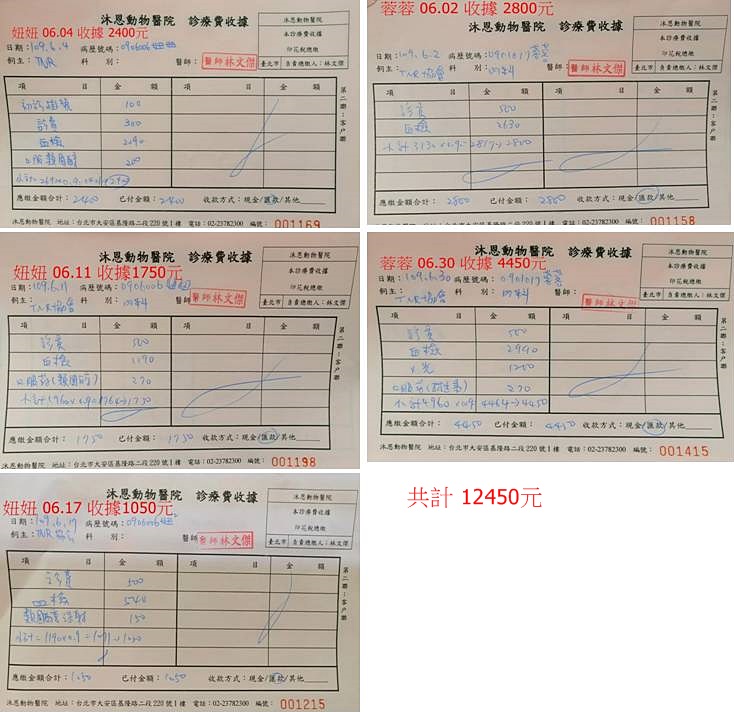 妞妞 06.04 收據 2400元
沐恩動物醫院 診療費收據
沐恩動物醫院
本診療費收據
印花稅總繳
臺北市 負責總繳人：林文傑
日期：109.6.4 病歷號碼：0906006 妞妞
飼主：TNR 科 別： 醫師：醫師林文傑
項 目 金 額 項 目 金 額
初診掛號 100
診資 300
血檢 2090
200
應繳金額合計：2400 已付金額：2400 收款方式：現金/匯款/其他
沐恩動物醫院 地址：台北市大安區基隆路二段220號1樓 電話：02-23782300 編號：001169
第二聯：客戶聯
蓉蓉 06.02 收據 2800元
沐恩動物醫院 診療費收據
沐恩動物醫院
本診療費收據
印花稅總繳
臺北市 負責總繳人：林文傑
日期：109.6.2 病歷號碼：0901017 蓉蓉
飼主：TNR協會 科 別：內科 醫師：醫師林文傑
項 目 金 額 項 目 金 額
診資 500
血檢 2630
小計 3130×0.9=2817→2800
應繳金額合計：2800 已付金額：2800 收款方式：現金/匯款/其他
沐恩動物醫院 地址：台北市大安區基隆路二段220號1樓 電話：02-23782300 編號：001158
第二聯：客戶聯
妞妞 06.11 收據1750元
沐恩動物醫院 診療費收據
沐恩動物醫院
本診療費收據
印花稅總繳
臺北市 負責總繳人：林文傑
日期：109.6.11 病歷號碼：0906006 妞妞
飼主：TNR協會 科 別：內科 醫師林文傑
項 目 金 額 項 目 金 額
診資 500
血檢 1190
口服藥(類固醇) 270
小計1960×0.9=1764→1750
應繳金額合計：1750 已付金額：1750 收款方式：現金/匯款/其他
沐恩動物醫院 地址：台北市大安區基隆路二段220號1樓 電話：02-23782300 編號：001198
第二聯：客戶聯
蓉蓉 06.30 收據 4450元
沐恩動物醫院 診療費收據
沐恩動物醫院
本診療費收據
印花稅總繳
臺北市 負責總繳人：林文傑
日期：109.6.30 病歷號碼：0901017 蓉蓉
飼主：TNR協會 科 別：內科 醫師：醫師林文傑
項 目 金 額 項 目 金 額
診資 500
血檢 2990
X光 1200
270
小計4960×0.9=4464→4450
應繳金額合計：4450 已付金額：4450 收款方式：現金/匯款/其他
沐恩動物醫院 地址：台北市大安區基隆路二段220號1樓 電話：02-23782300 編號：001415
第二聯：客戶聯
妞妞 06.17 收據1050元
沐恩動物醫院 診療費收據
沐恩動物醫院
本診療費收據
印花稅總繳
臺北市 負責總繳人：林文傑
日期：109.6.17 病歷號碼：0906006 妞
飼主：TNR協會 科 別： 醫師林文傑
項 目 金 額 項 目 金 額
診資 500
血檢 540
150
應繳金額合計：1050 已付金額：1050 收款方式：現金/匯款/其他
沐恩動物醫院 地址：台北市大安區基隆路二段220號1樓 電話：02-23782300 編號：001215
第二聯：客戶聯
共計 12450元